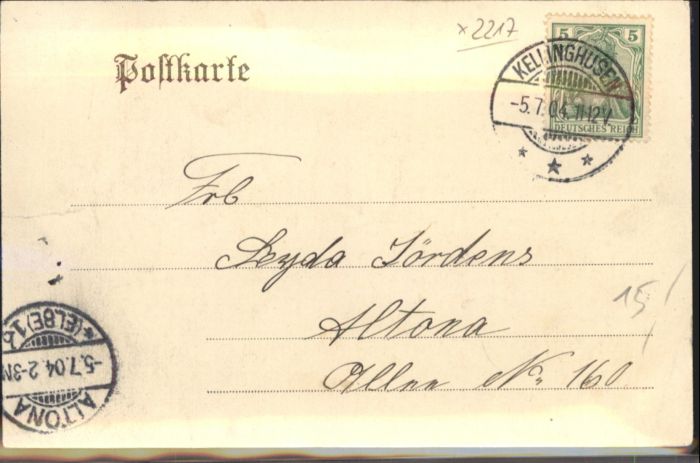 x2217
5 5
Postkarte
KELLINGHUSEN
-5.7.04.11-12V
DEUTSCHES REICH
Frl
Jördens
Altona
Allee No 160
15
ALTONA
-5.7.04.2-3N
*(ELBE)1b